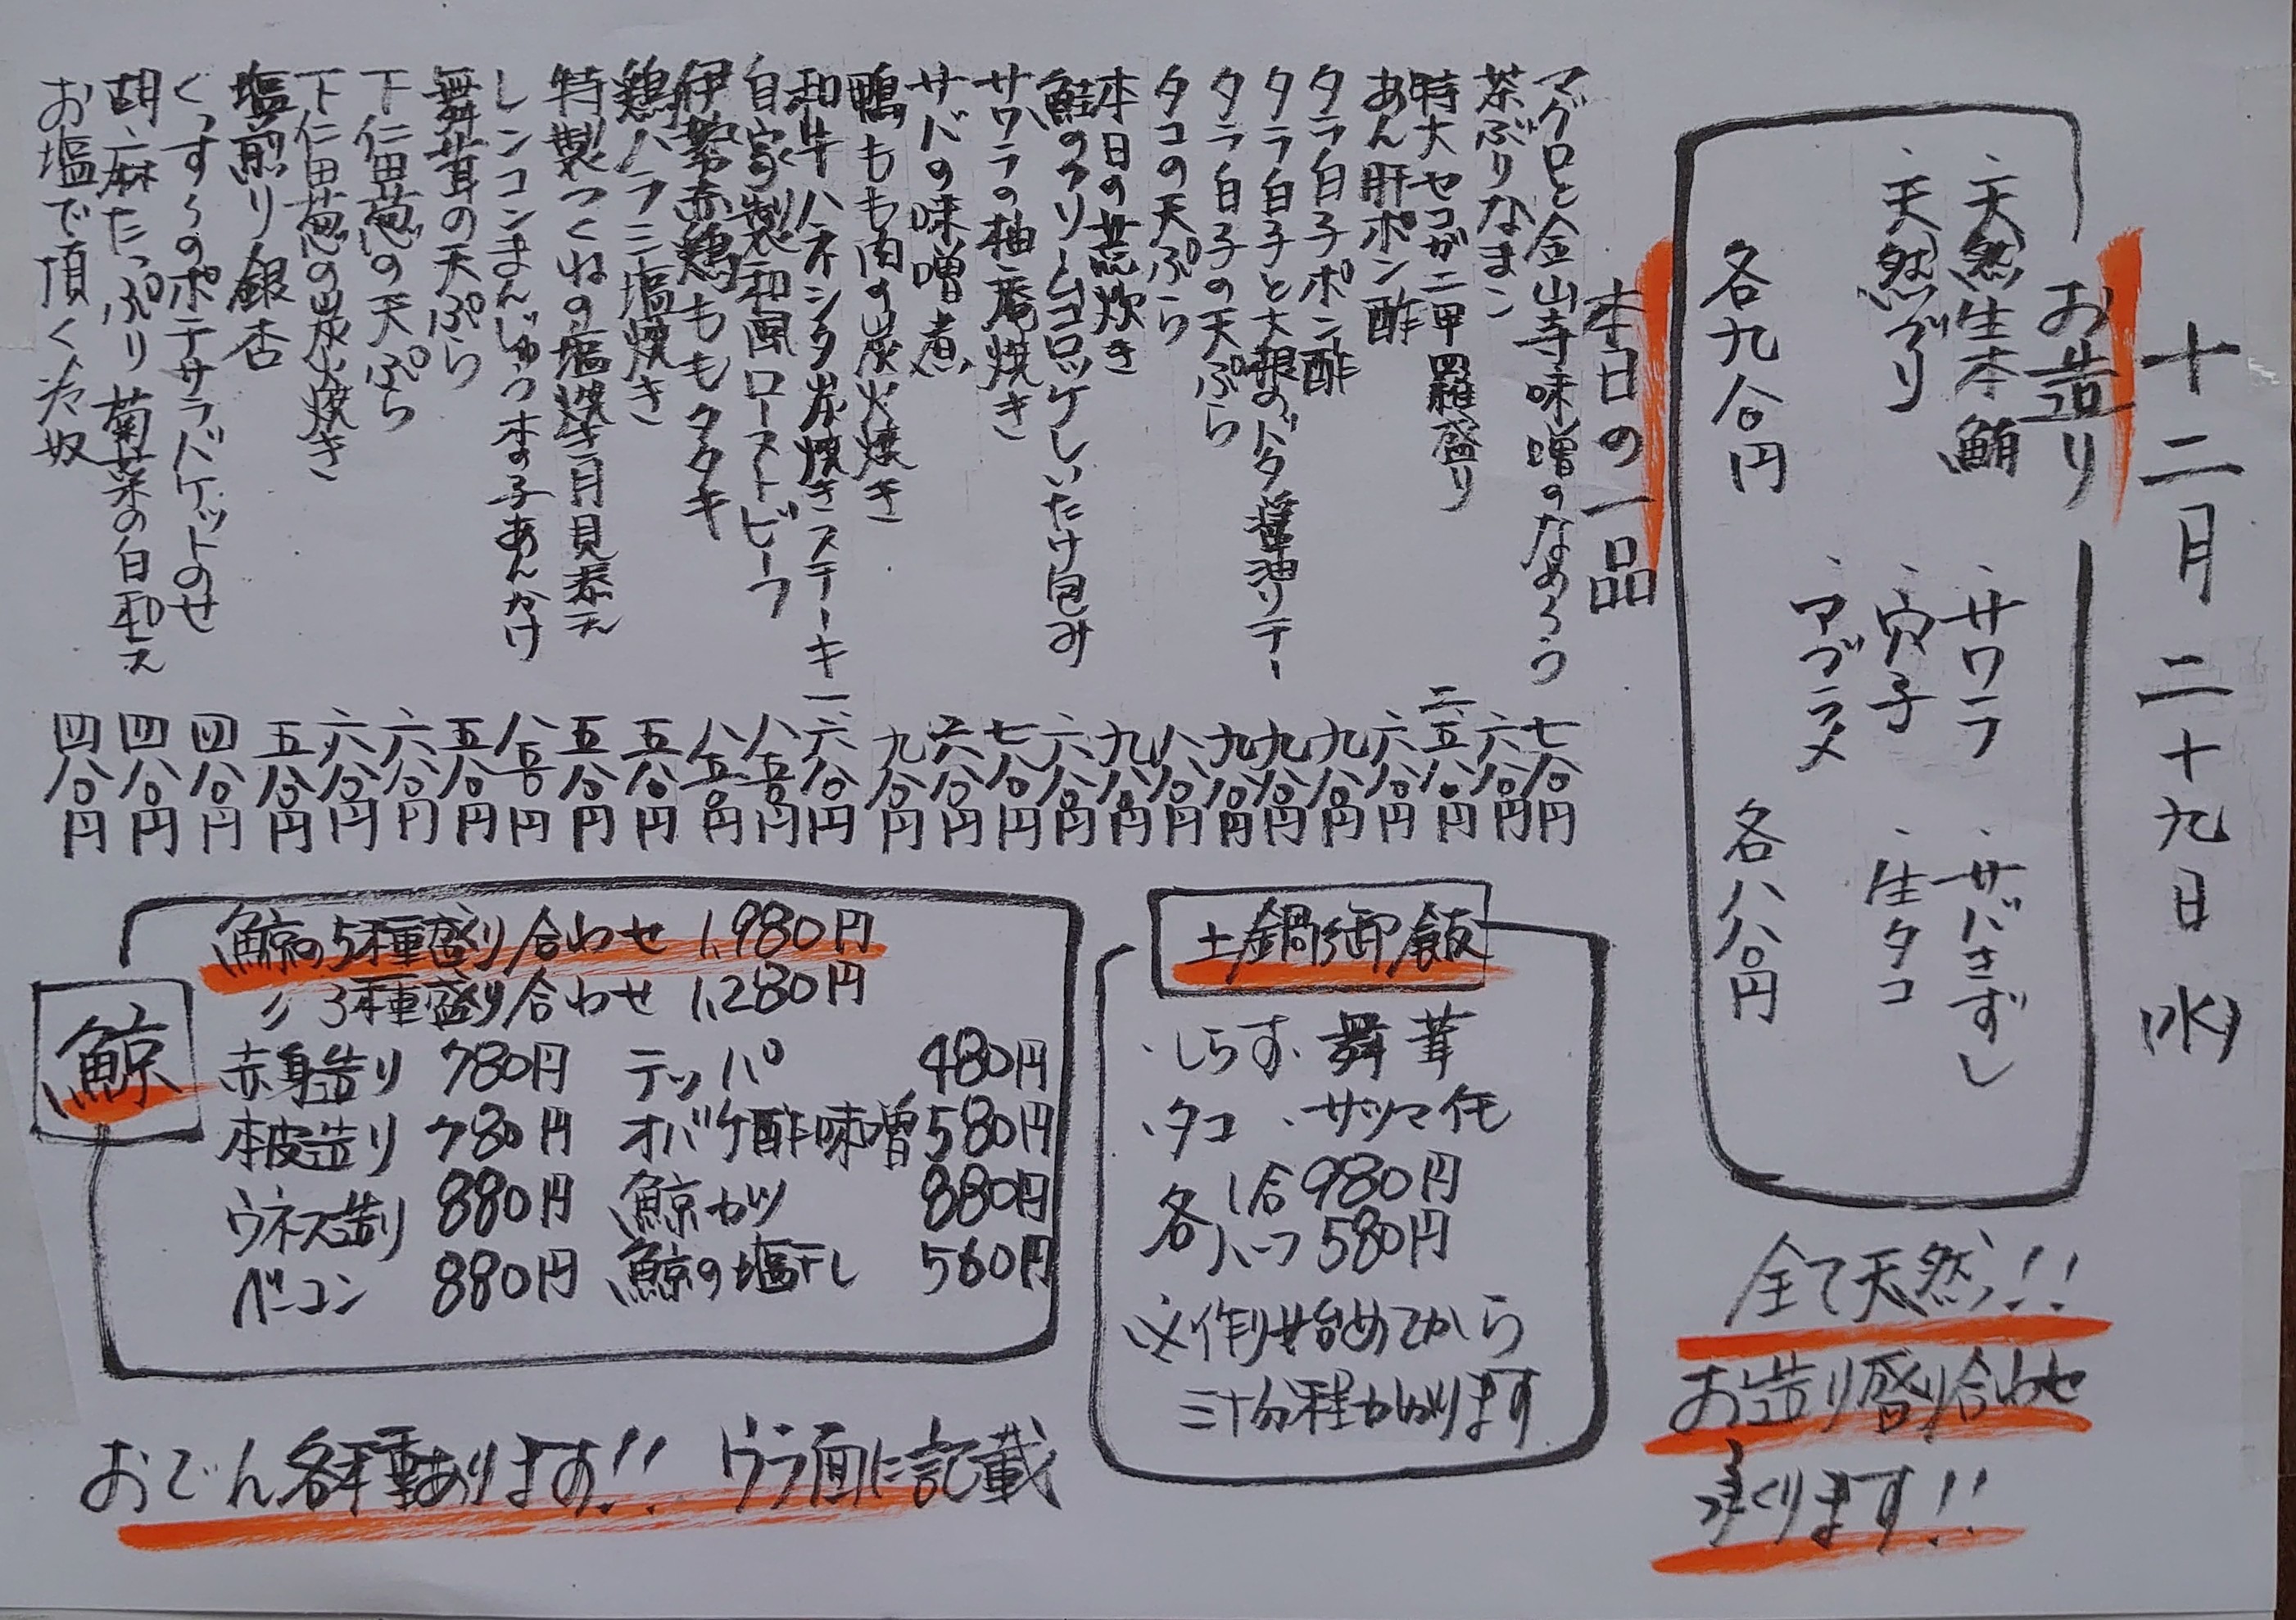 十二月二十九日(水)
お造り
・天然生本鮪
・天然ブリ
各九八〇円
・サワラ
・穴子
・アブラメ
・サバきずし
・生タコ
各八八〇円
全て天然!!
お造り盛り合わせ
承ります!!
本日の一品
マグロと金山寺味噌のなめろう 七八〇円
茶ぶりなまこ 六八〇円
特大セコガニ甲羅盛り 二、五八〇円
あん肝ポン酢 六八〇円
タラ白子ポン酢 九八〇円
タラ白子と大根のバタ醤油ソテー 九八〇円
タラ白子の天ぷら 九八〇円
タコの天ぷら 八八〇円
本日の荒炊き 九八〇円
鮭のクリームコロッケしいたけ包み 六八〇円
サワラの柚庵焼き 七八〇円
サバの味噌煮 六八〇円
鴨もも肉の炭火焼き 九八〇円
和牛ハネシタ炭焼きステーキ 一、六八〇円
自家製和風ローストビーフ 八五〇円
伊勢赤鶏ももタタキ 八五〇円
鶏ハラミ塩焼き 五八〇円
特製つくねの塩焼き月見添え 五八〇円
レンコンまんじゅう木の子あんかけ 八五〇円
舞茸の天ぷら 五八〇円
下仁田葱の天ぷら 六八〇円
下仁田葱の炭火焼き 六八〇円
塩煎り銀杏 五八〇円
くっすんのポテサラバケットのせ 四八〇円
胡麻たっぷり菊菜の白和え 四八〇円
お塩で頂く冷奴 四八〇円
土鍋御飯
・しらす ・舞茸
・タコ ・サツマ芋
各1合 980円
各ハーフ 580円
※作り始めてから
三十分程かかります
鯨
鯨の5種盛り合わせ 1,980円
〃 3種盛り合わせ 1,280円
赤身造り 780円 テッパ 480円
本皮造り 780円 オバケ酢味噌 580円
ウネス造り 880円 鯨カツ 880円
ベーコン 880円 鯨の塩干し 560円
おでん各種あります!! ウラ面に記載